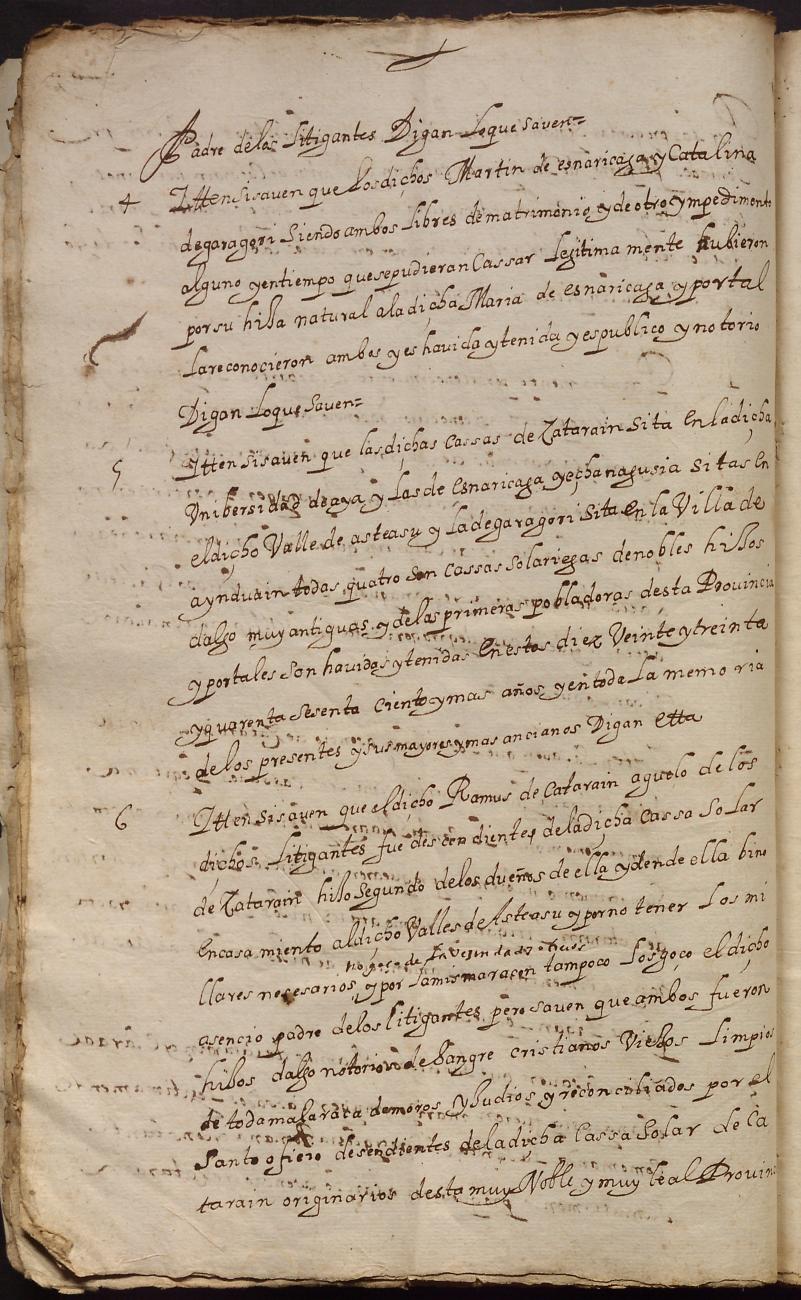 Padre delos litigantes Digan loque Saven=
4 Itten si saven que los dichos Martin de esnaricaga y Catalina
de garagorri Siendo ambos libres de matrimonio y de otro ympedimento
alguno y en tiempo que se pudieran Cassar legitima mente hubieron
por su hija natural a la dicha Maria de esnaricaga y por tal
la reconocieron ambos y es havida y tenida y es publico y notorio
Digan loque Saven=
5 Itten si saven que las dichas Cassas de Zatarain sita en la dicha
Unibersidad de aya y las de esnaricaga y echanagusia sitas en
el dicho Valle de asteasu y la de garagorri sita en la Villa de
aynduain todas quatro son Cassas solariegas de nobles hijos
dalgo muy antiguas y de las primeras pobladoras desta Provincia
y por tales son havidas y tenidas en estos diez Veinte y treinta
y quarenta sesenta ciento y mas años y en toda la memoria
de los presentes y sus mayores y mas ancianos Digan etta
6 Itten si saven que el dicho Ramus de Catarain aguelo de los
dichos litigantes fue descendiente de la dicha Cassa Solar
de Zatarain hijo Segundo de los dueños de ella y dende ella bino
en casamiento al dicho Valles de Asteasu y por no tener los mi
no goço de la Vezindad y oficios
llares necesarios y por la misma raçen tampoco los goço el dicho
asencio padre de los litigantes pero saven que ambos fueron
hijos dalgo notorios de sangre cristianos Viejos limpios
de toda mala raça de moros y judios y reconciliados por el
Santo oficio desendientes de la dicha Cassa Solar de Ca
tarain originarios desta muy Noble y muy leal Provin